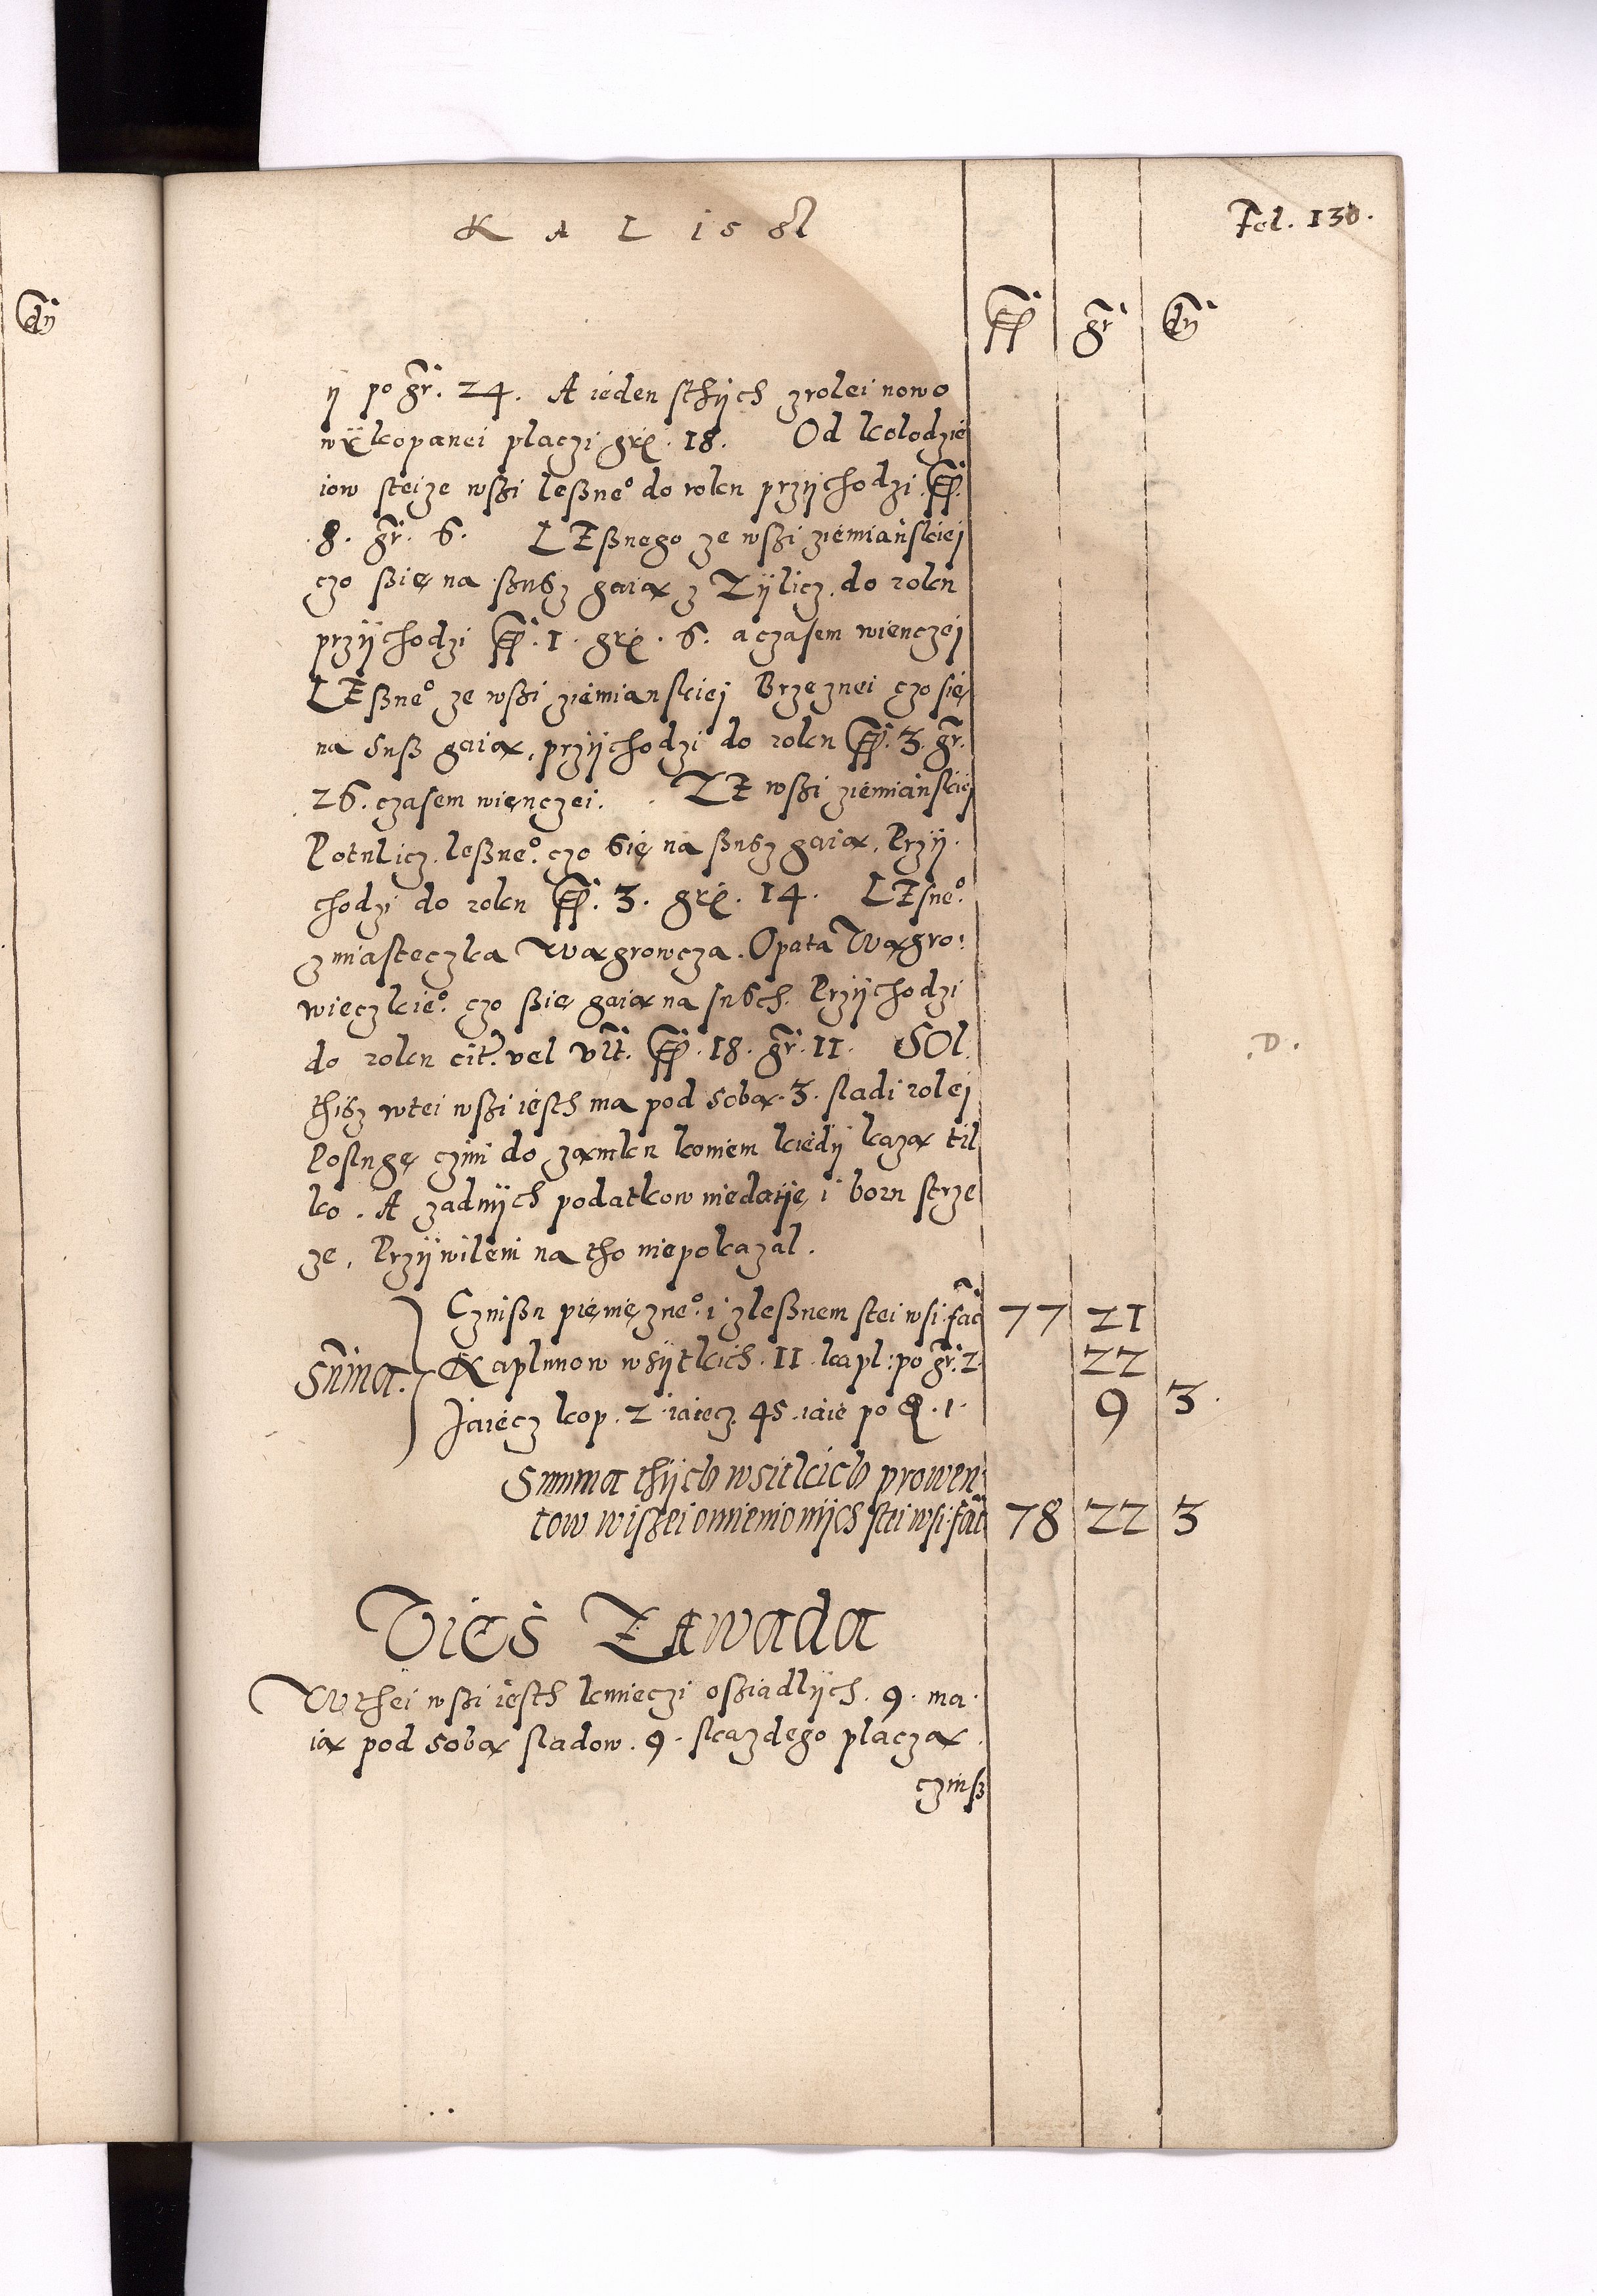 KALISSZ
Fol. 130.
fl gr dn
dn
ÿ po gr. 24. A ieden sthÿch zrolei nowo
wÿkopanei placzi grß. 18. Od kolodzie
iow steize wßi leßneº do roku przÿchodzi fl.
8. gr. 6. LEßnego ze wßi ziemianskiej
czo ßię na ßusz gaią z Zÿlicz. do roku
przÿchodzi fl. 1. grß. 6. a czasem wienczej
LEßneº ze wßi ziemianskiej Brzeznei czo się
na suß gaią, przÿchodzi do roku fl. 3. gr.
26. czasem wienczei. ZE wßi ziemianskiej
Potulicz. leßneº. czo się na ßusz gaią. Przÿ.
chodzi do roku fl. 3. grß. 14. LEsneº.
z miasteczka Wągrowcza. Opata Wągro:
wieczkieº. czo ßię gaią na susch. Przÿchodzi
do roku cit. vel vlt. fl. 18. gr. 11. SOl.
thisz wtei wßi iesth ma pod sobą. 3. sladi rolej
Poslugę czini do zamku koniem kiedÿ każą til
ko. A zadnÿch podatkow niedaije i boru strze
ze, Przÿwileiu na tho niepokazal.
Summa.
Czinßu pienięzneº. i zleßnem stei wsi. facit 77 21
Kaplunow wsÿtkich. 11. kapl: po gr. 2. 22
Jaiecz kop. 2. iaiecz. 45. iaie po q. 1. 9 3.
Summa thÿch wsitkich prowen:
tow wiszei omienionÿch stei wsi. facit 78 22 3
.D.
Vieś ZAwada
W thei wßi iesth kmieczi oßiadlÿch. 9. ma.
ią pod sobą sladow. 9. skazdego placzą.
czinß